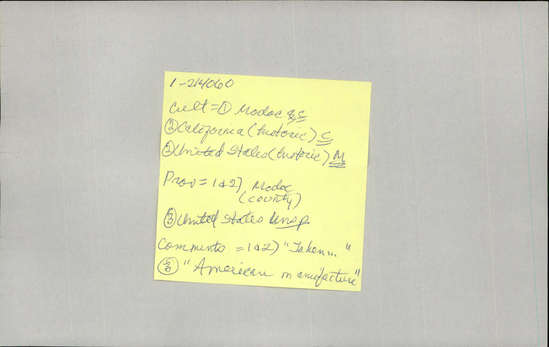 1-214060
Cult = ① Modoc &, C
② California (historic) C
③ United States (historic) M
Prov = 1&2) Modoc
(county)
③ United States Unsp.
Comments = 1&2) "Taken... "
③ "American manufacture"